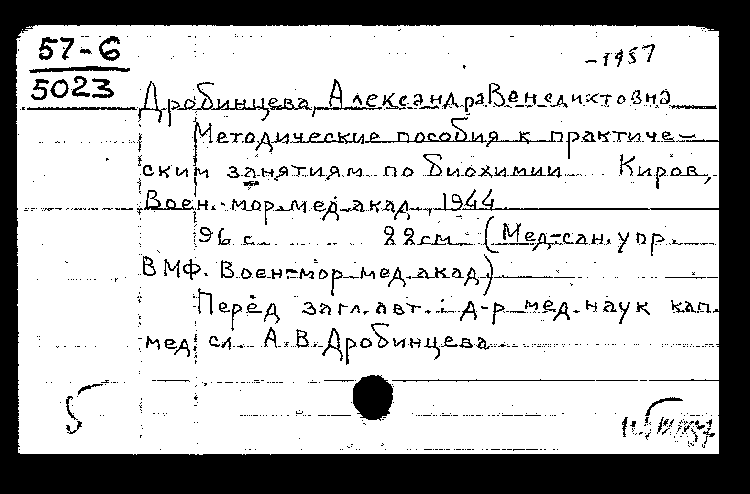 57-6
5023
-1957
Дробинцева, Александра Венедиктовна
Методические пособия к практиче-
ским занятиям по биохимии Киров,
Воен.-мор.мед.акад., 1944.
96 с. 22см (Мед-сан.упр.
ВМФ. Воен-мор мед.акад.)
Перед загл.авт.: д-р мед.наук кап.
мед сл. А.В.Дробинцева
Б